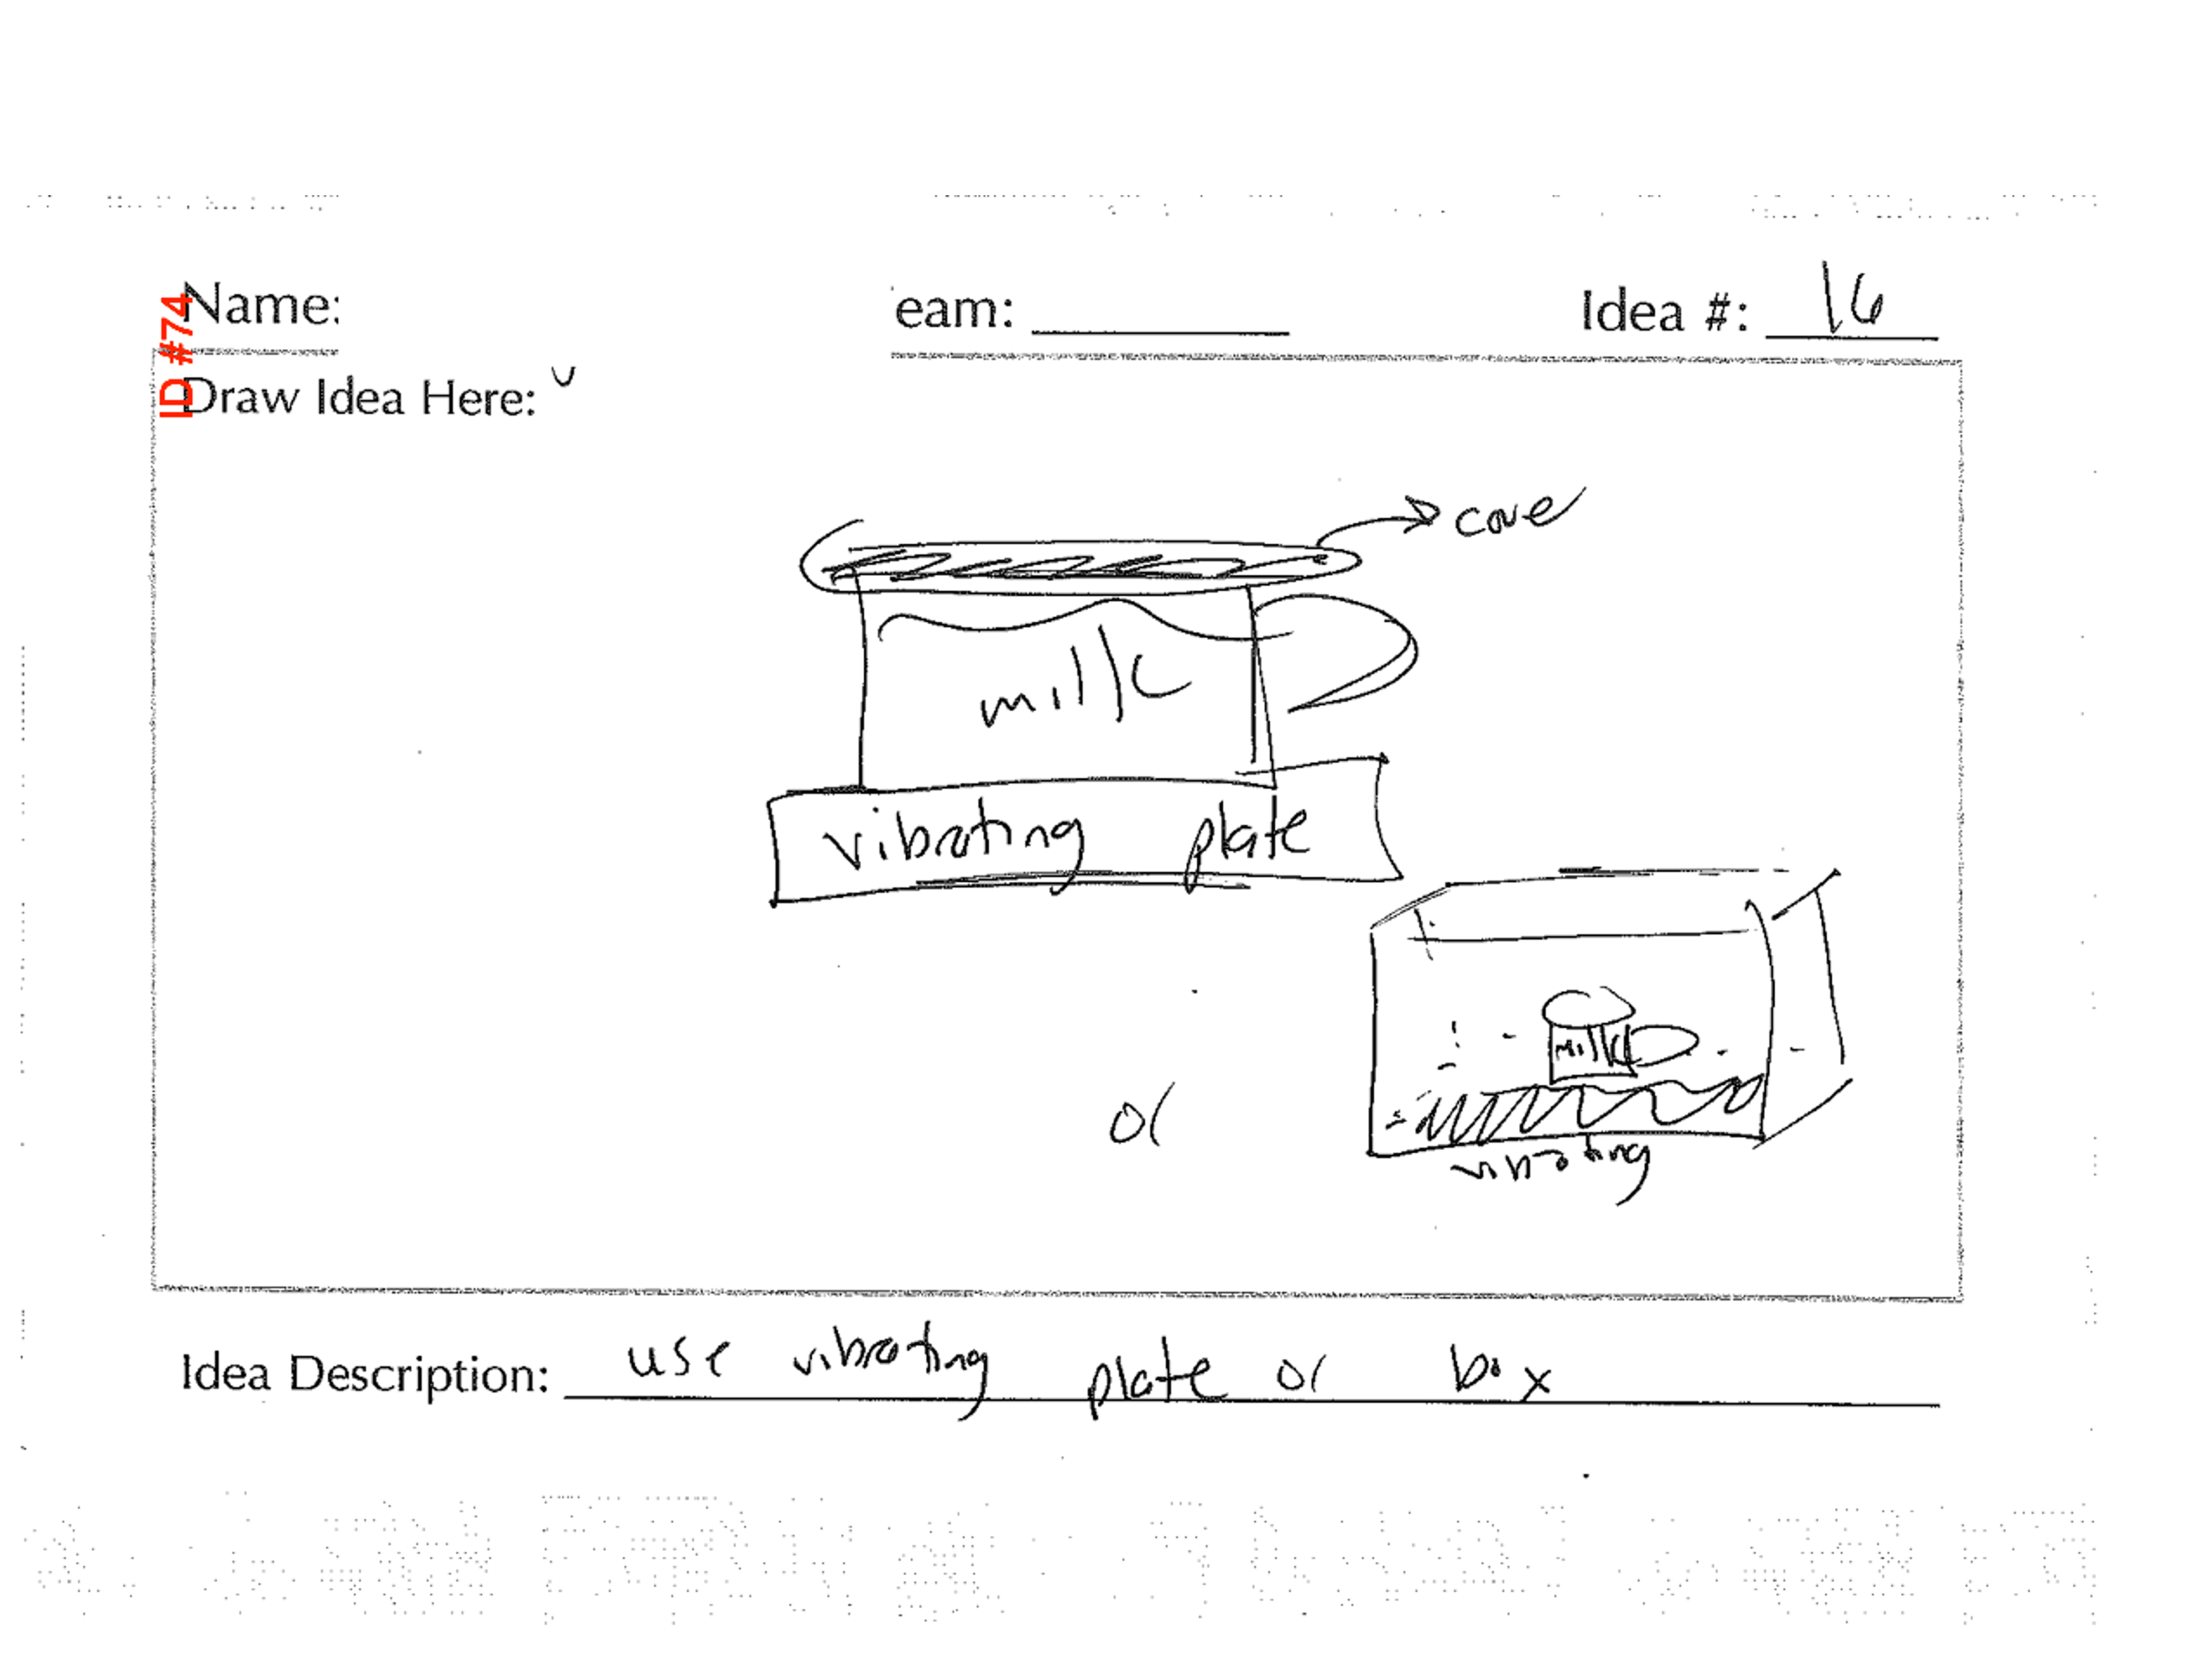 ID #74
Name: eam: Idea #: 16
Draw Idea Here:
cove
milk
vibrating plate
milk
or
vibrating
Idea Description: use vibrating plate or box